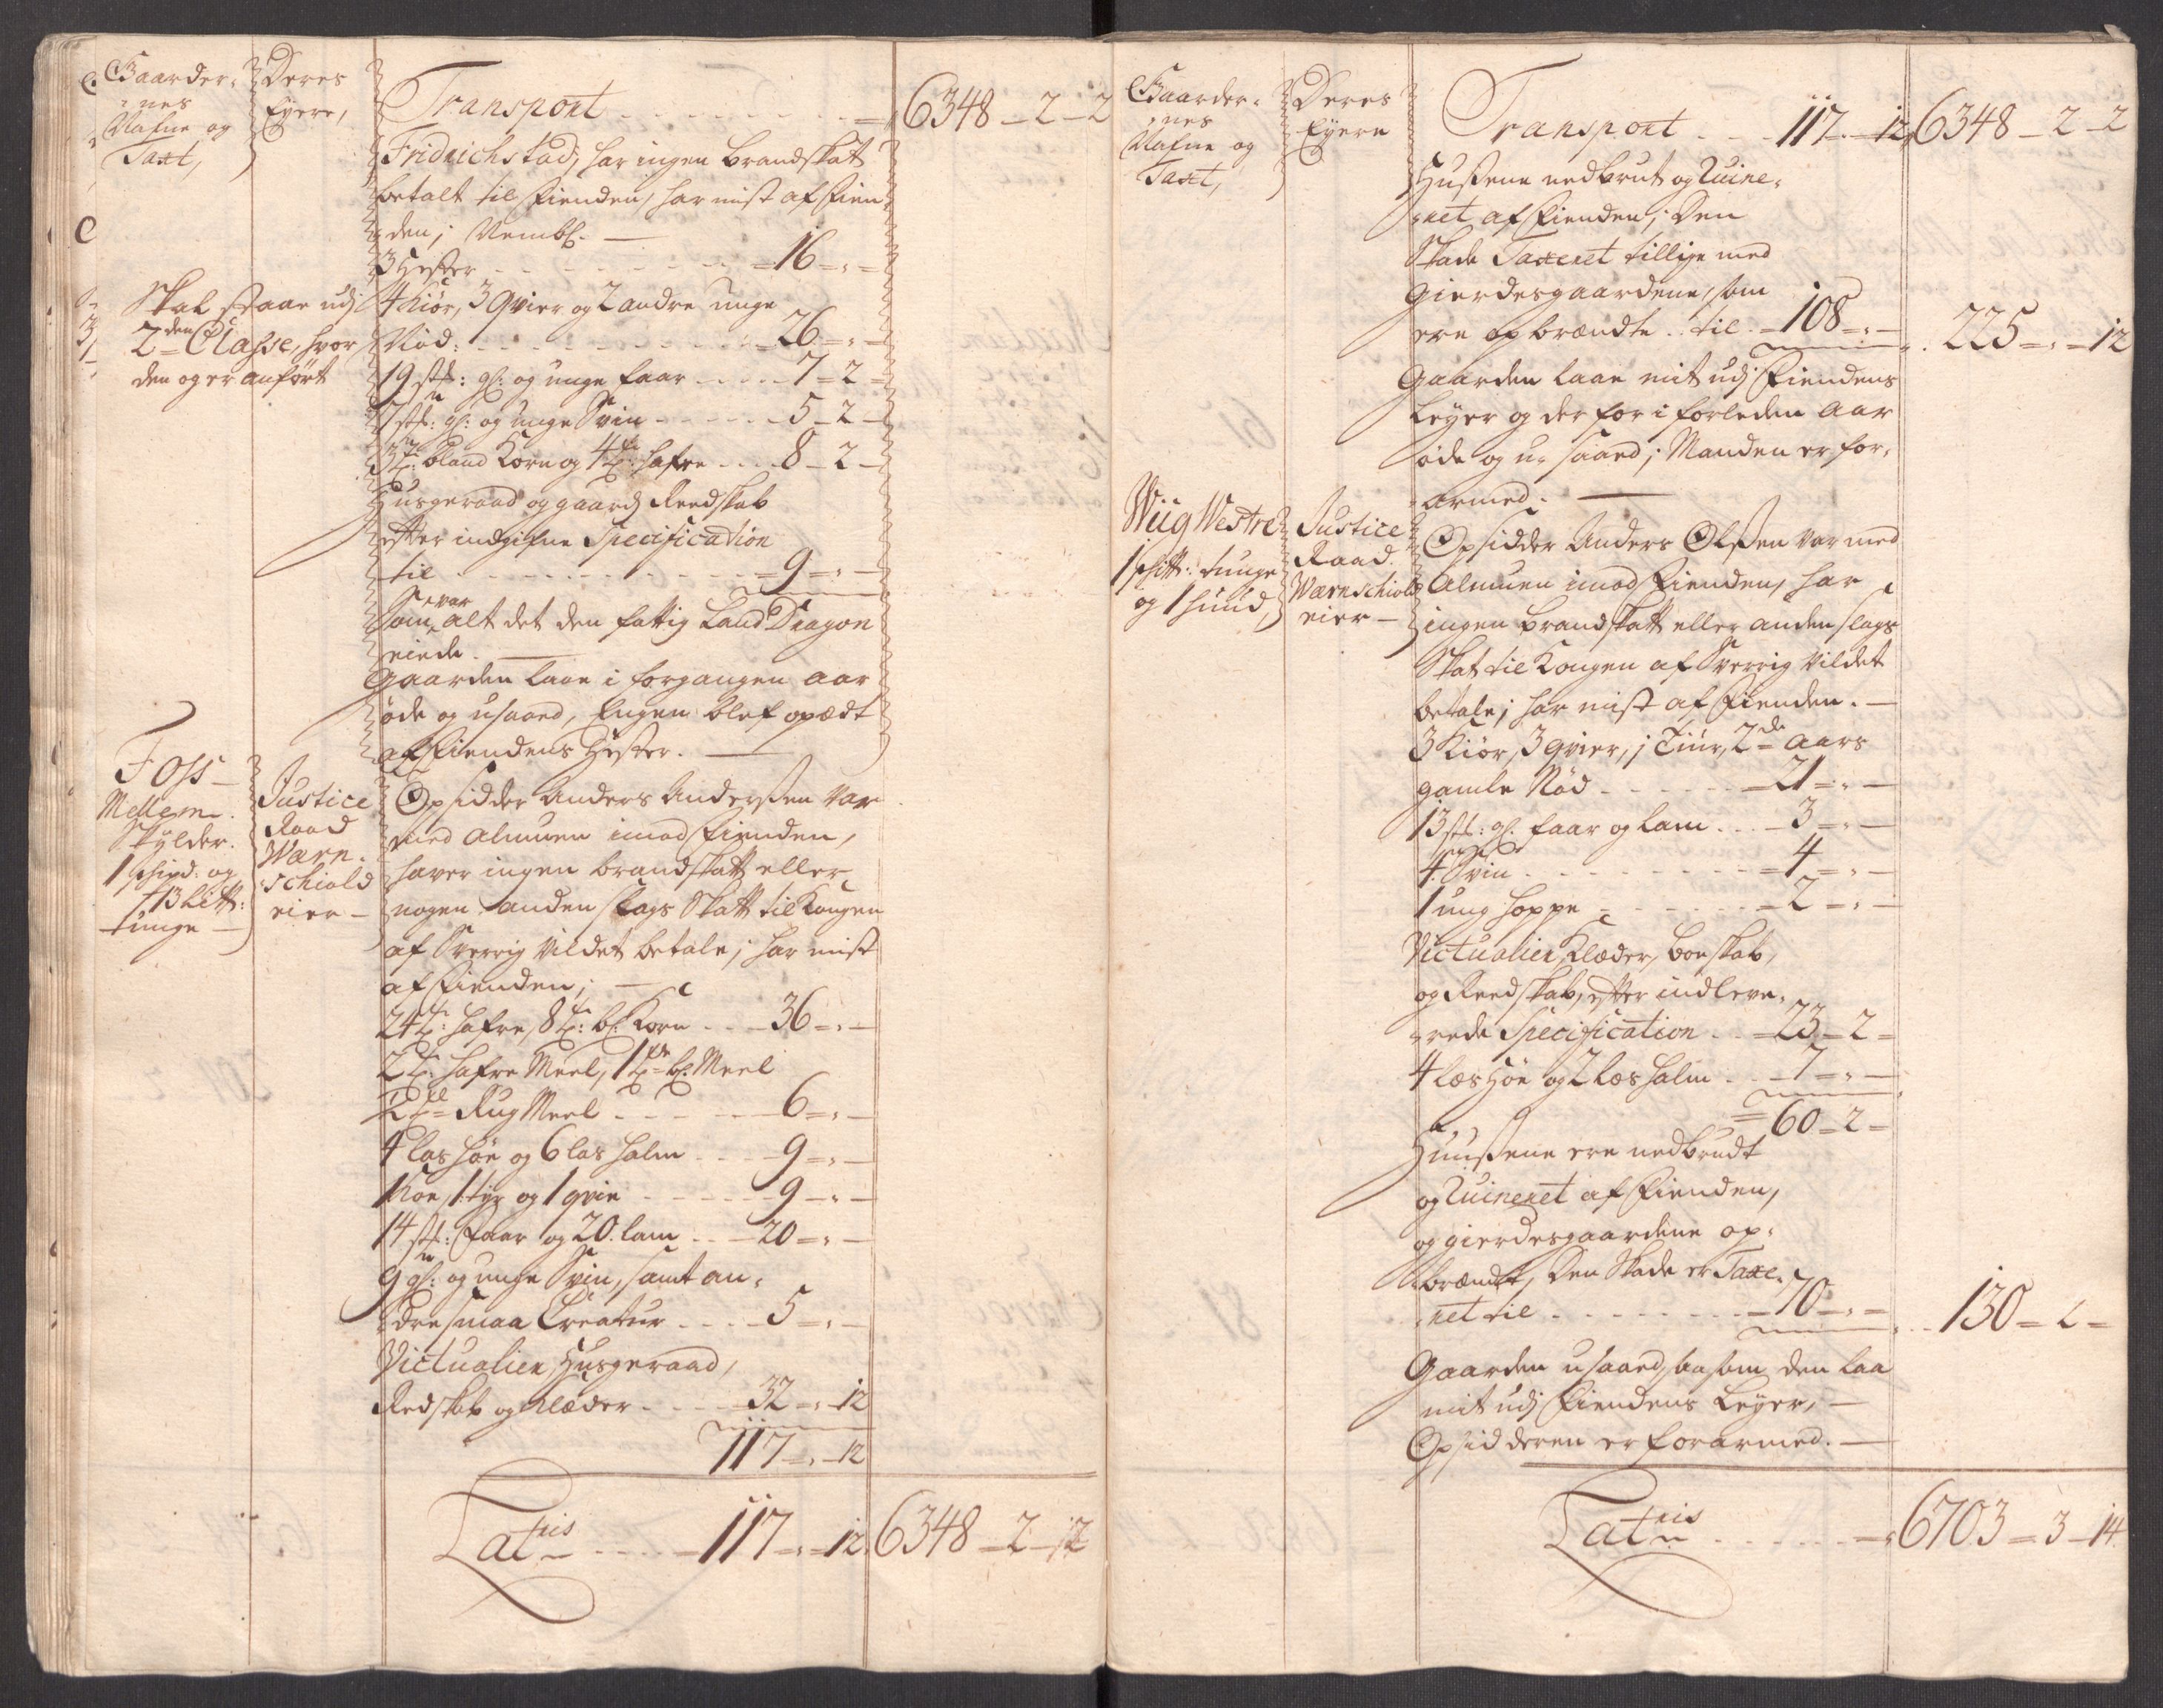 Gaarder-
nes
Nafne og
Taxt,
Deres
Eyere,
Transport - - - - 6348 - 2 - 2
Fridrichstad, har ingen brandskat
betalt til Fienden, har mist af Fien-
den; Nembl. -
3 Hester - - - 16 - " -
4 Kiør, 3 qvier og 2 andre unge
Nød: - - - 26 - " -
19 stk: gl: og unge faar - - - 7 - 2 -
7 stk: gl: og unge Svin - - - 5 - 2 -
3 Tr: bland Korn og 4 Tr: hafre - - - 8 - 2 -
Husgeraad og gaards Reedskab
efter indgifne Specification
til - - - 9 - " -
Som var alt det den fattig Land Dragon
eiede. -
Gaarden laae i forgangen aar
øde og usaaed, Engen blef opædt
af Fiendens Hester. -
Skal staae udj
2den Classe, hvor
den og er anført
Foss
Mellem.
Skylder.
1 schipd: og
13 Litt:
tunge -
Justice
Raad
Wærn-
schiold
eier -
Opsidder Anders Anderssen var
med Almuen imod Fienden,
hafver ingen brandskatt eller
nogen anden slags Skatt til Kongen
af Sverrig vildet betale; har mist
af Fienden; -
24 Tr: hafre, 8 Tr: bl: Korn - - 36 - " -
2 Tr: hafre Meel, 1 Tr bl: Meel
Rug Meel - - - 6 - " -
4 las høe og 6 las halm - - 9 - " -
1 Koe, 1 tyr og 1 qvie - - - 9 - " -
14 stk: Faar og 20 lam - - 20 - " -
9 gl: og unge Svin, samt an-
dre smaa Creatur - - - 5 - " -
Victualier, Husgeraad,
Redskab og Klæder - - - 32 - " - 12
117 - " - 12
Latris - - - 117 - " - 12 6348 - 2 - 2
Gaarder-
nes
Nafne og
Taxt,
Deres
Eyere
Transport - - - 117 - " - 12 6348 - 2 - 2
Hussene nedbrut og Ruine-
ret af Fienden; Den
Skade Taxeret tillige med
Gierdesgaardene, som
ere opbrændte til - 108 - " - 225 - " - 12
Gaarden laae mit udj Fiendens
Leyer og der for i forleden Aar
øde og u-saaed; Manden er for-
armed. -
Wiig Westre
1 schitt: tunge
og 1 huud,
Justice
Raad
Wærnschiold
eier -
Opsidder Anders Olssen var med
Almuen imod Fienden, har
ingen brandskatt eller anden slags
Skat til Kongen af Sverrig vildet
betale; har mist af Fienden. -
3 Kiør, 3 qvier, 1 Tiur, 2de Aars
gamle Nød - - - 21 - " -
13 stk: gl: faar og lam - - 3 - " -
4 Svin - - - 4 - " -
1 ung hoppe - - - 2 - " -
Victualier, Klæder, boeskab,
og Reedskab, efter indleve-
rede Specification - - 23 - 2 -
4 læs Høe og 2 læs halm - - 7 - " -
60 - 2 -
Huussene ere nedbrudt
og Ruineret af Fienden,
og gierdesgaardene op-
brændt, Den Skade er Taxe-
ret til - - - 70 - " - 130 - 2 -
Gaarden usaaed, saasom den laa
mit udj Fiendens Leyer, -
Opsidderen er forarmed. -
Latris - - - 6703 - 3 - 14